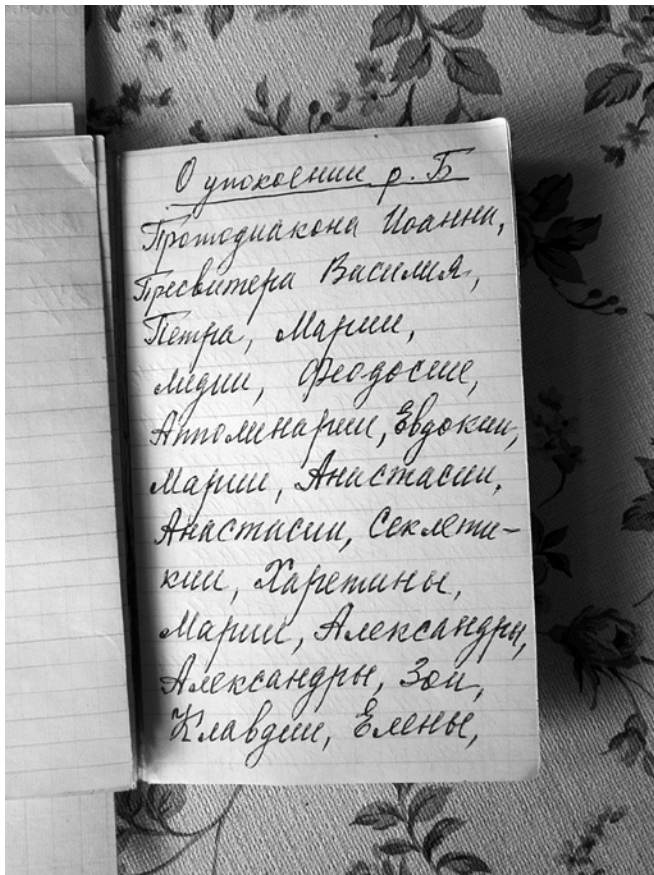 О упокоении р. Б
Протодиакона Иоанна,
Пресвитера Василия,
Петра, Марии,
Лидии, Феодосие,
Апполинарии, Евдокии,
Марии, Анастасии,
Анастасии, Секлети-
кии, Харетины,
Марии, Александры,
Александры, Зои,
Клавдии, Елены,